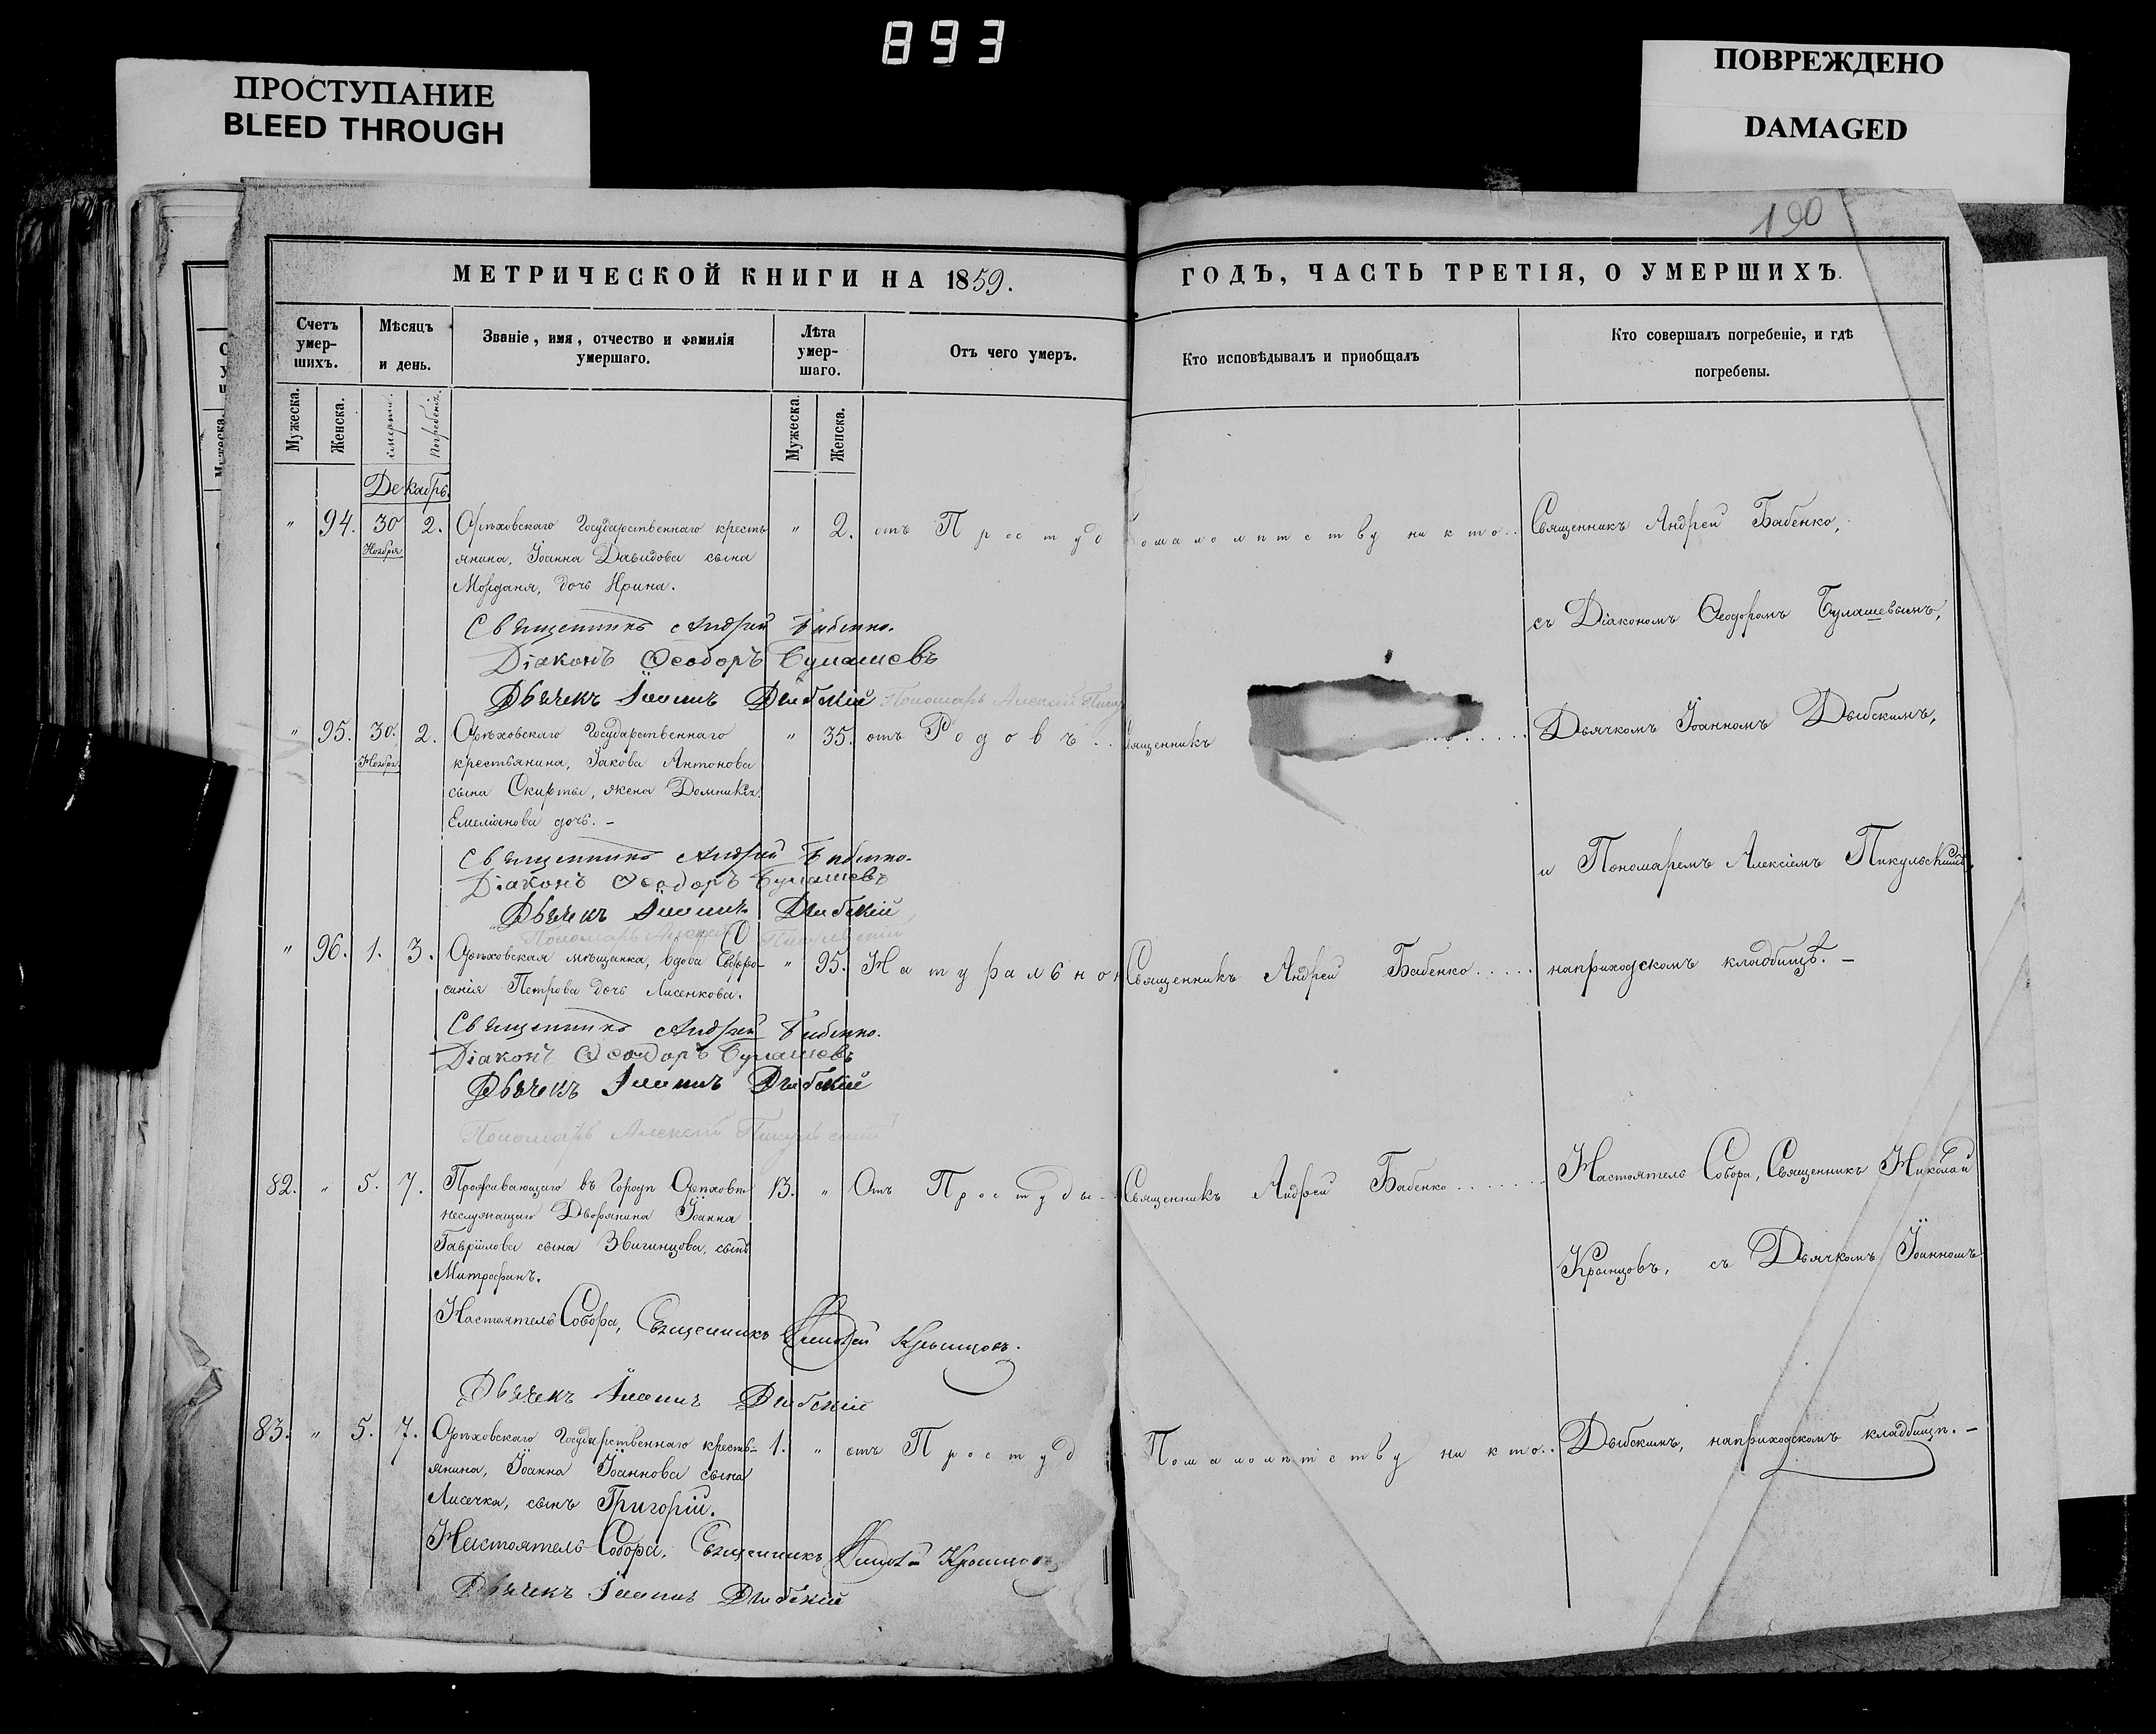 893
ПРОСТУПАНИЕ
BLEED THROUGH
ПОВРЕЖДЕНО
DAMAGED
190
МЕТРИЧЕСКОЙ КНИГИ НА 1859.
ГОДЪ, ЧАСТЬ ТРЕТІЯ, О УМЕРШИХЪ.
Счетъ умер-шихъ.
Мѣсяцъ и день.
Званіе, имя, отчество и фамилія умершаго.
Лѣта умер-шаго.
Отъ чего умеръ.
Кто исповѣдывалъ и приобщалъ
Кто совершалъ погребеніе, и гдѣ погребены.
Мужеска.
Женска.
смерти.
погребенія.
Мужеска.
Женска.
Декабрь.
" 94. 30 Ноября 2. Орѣховскаго Государственнаго кресть " 2. отъ Простуд омалолѣтству никто.. Священникъ Андрей Бабенко,
янина, Іоанна Давидова сына
Морданя, дочь Ирина.
Священникъ Андрей Бабенко.
съ Діакономъ Ѳеодоромъ Булашевымъ,
Діаконъ Ѳеодоръ Булашевъ
Дьячекъ Іоаннъ Дыбскій Пономарь Алексій
" 95. 30. Ноября 2. Орѣховскаго Государственнаго " 35. отъ Родовъ.. вященникъ Дьячкомъ Іоанномъ Дыбскимъ,
крестьянина, Іакова Антонова
сына Скирты, жена Домникія
Емеліянова дочь. -
Священникъ Андрей Бабенко.
и Пономаремъ Алексіемъ Пикульскимъ,
Діаконъ Ѳеодоръ Булашевъ
Дьячекъ Іоаннъ Дыбскій
Пономарь Алексій Пикульскій
" 96. 1. 3. Орѣховская мѣщанка, вдова Евфро- " 95. Натурально Священникъ Андрей Бабенко..... наприходскомъ кладбищѣ. -
синія Петрова дочь Лисенкова.
Священникъ Андрей Бабенко.
Діаконъ Ѳеодоръ Булашевъ
Дьячекъ Іоаннъ Дыбскій
Пономарь Алексій Пикульскій
82. " 5. 7. Проживающаго въ Городѣ Орѣховѣ 13. " Отъ Простуды.. Священникъ Андрей Бабенко....... Настоятель Собора, Священникъ Николай
неслужащаго Дворянина Іоанна
Гавріилова сына Звигинцова, сынъ
Митрофанъ.
Крынцовъ, съ Дьячкомъ Іоанномъ
Настоятель Собора, Священникъ Николай Крынцовъ.
Дьячекъ Іоаннъ Дыбскій
83. " 5. 7. Орѣховскаго Государственнаго кресть- 1. " отъ Простуд Помалолѣтству никто.. Дыбскимъ, наприходскомъ кладбищѣ. -
янина, Іоанна Іоаннова сына
Лисечка, сынъ Григорій.
Настоятель Собора, Священникъ Николай Крынцовъ
Дьячекъ Іоаннъ Дыбскій